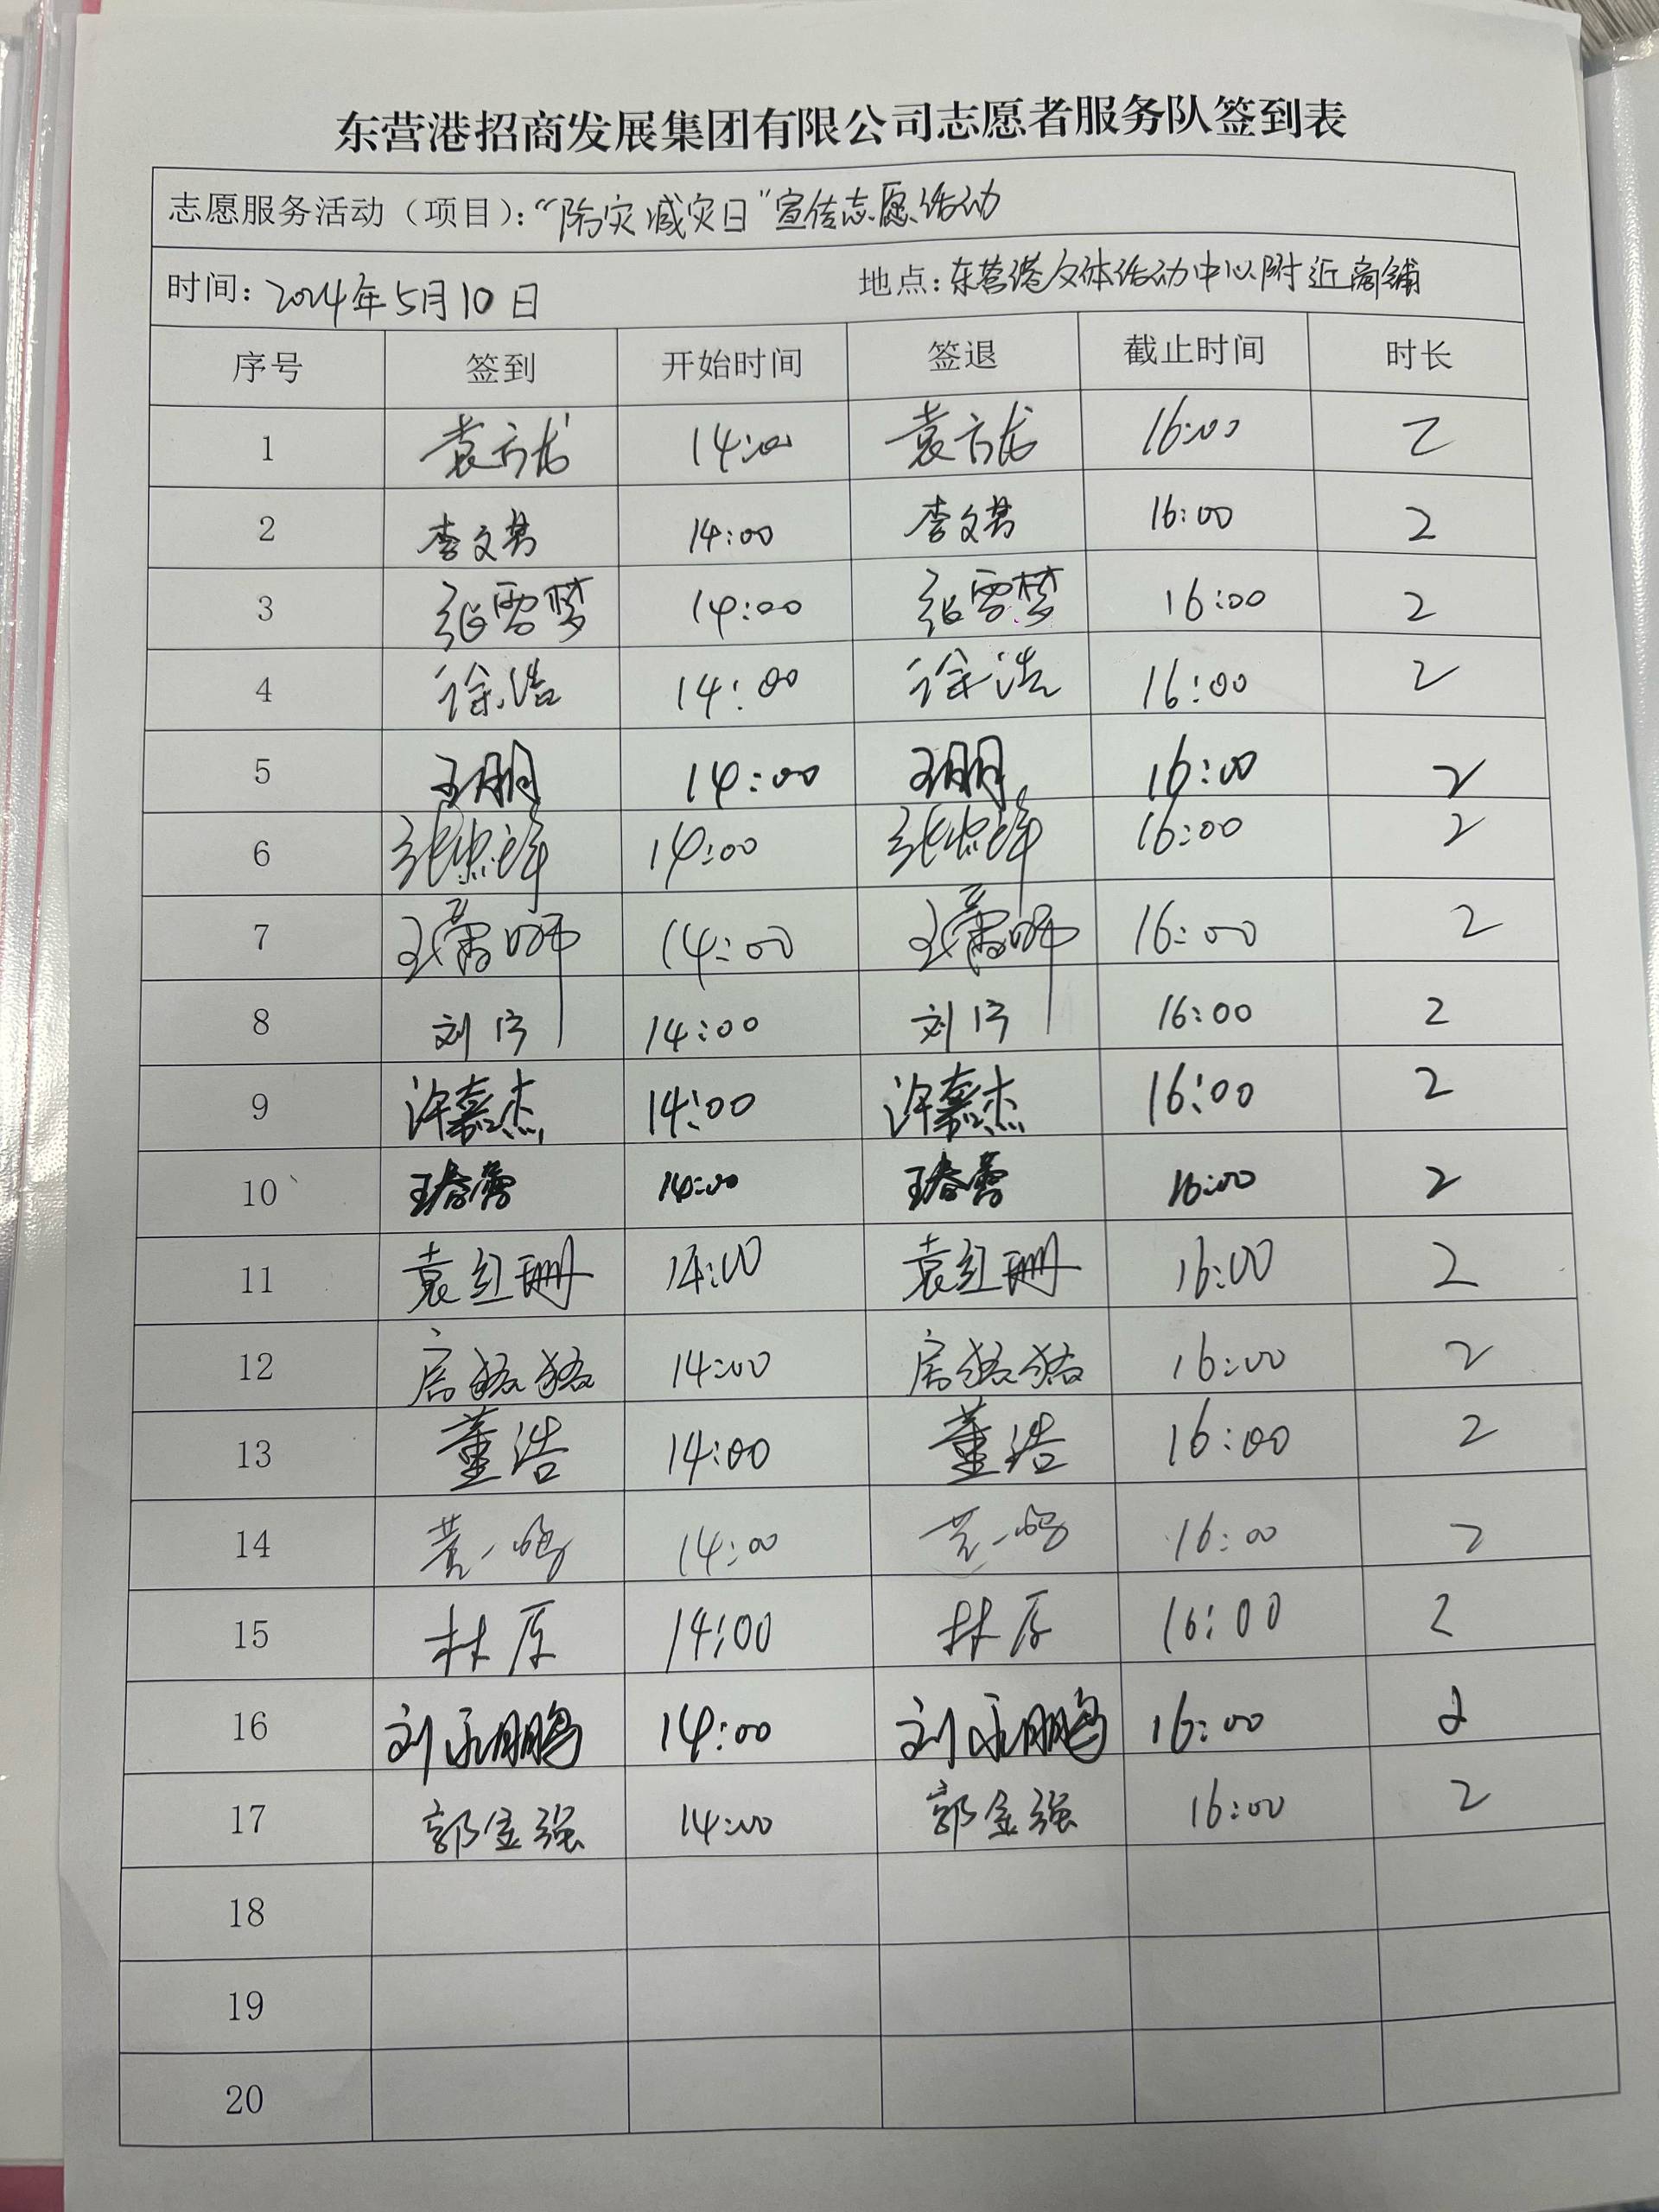 东营港招商发展集团有限公司志愿者服务队签到表
志愿服务活动（项目）：“防灾减灾日”宣传志愿活动
时间：2024年5月10日 地点：东营港文体活动中心附近商铺
序号 签到 开始时间 签退 截止时间 时长
1 袁方龙 14:00 袁方龙 16:00 2
2 李文君 14:00 李文君 16:00 2
3 张雪梦 14:00 张雪梦 16:00 2
4 徐浩 14:00 徐浩 16:00 2
5 王朋 14:00 王朋 16:00 2
6 张忠峰 14:00 张忠峰 16:00 2
7 王 14:00 王 16:00 2
8 刘宁 14:00 刘宁 16:00 2
9 许嘉杰 14:00 许嘉杰 16:00 2
10 王春蕾 14:00 王春蕾 16:00 2
11 袁红珊 14:00 袁红珊 16:00 2
12 房 14:00 房 16:00 2
13 董浩 14:00 董浩 16:00 2
14 14:00 16:00 2
15 林厚 14:00 林厚 16:00 2
16 刘永鹏 14:00 刘永鹏 16:00 2
17 郭金强 14:00 郭金强 16:00 2
18
19
20